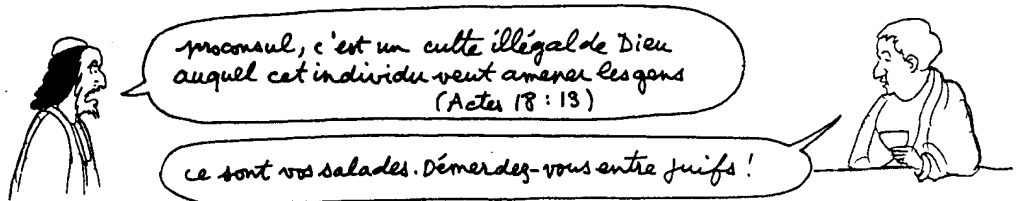 proconsul, c'est un culte illégal de Dieu
auquel cet individu veut amener les gens
(Actes 18 : 13)
ce sont vos salades. Démerdez-vous entre juifs !